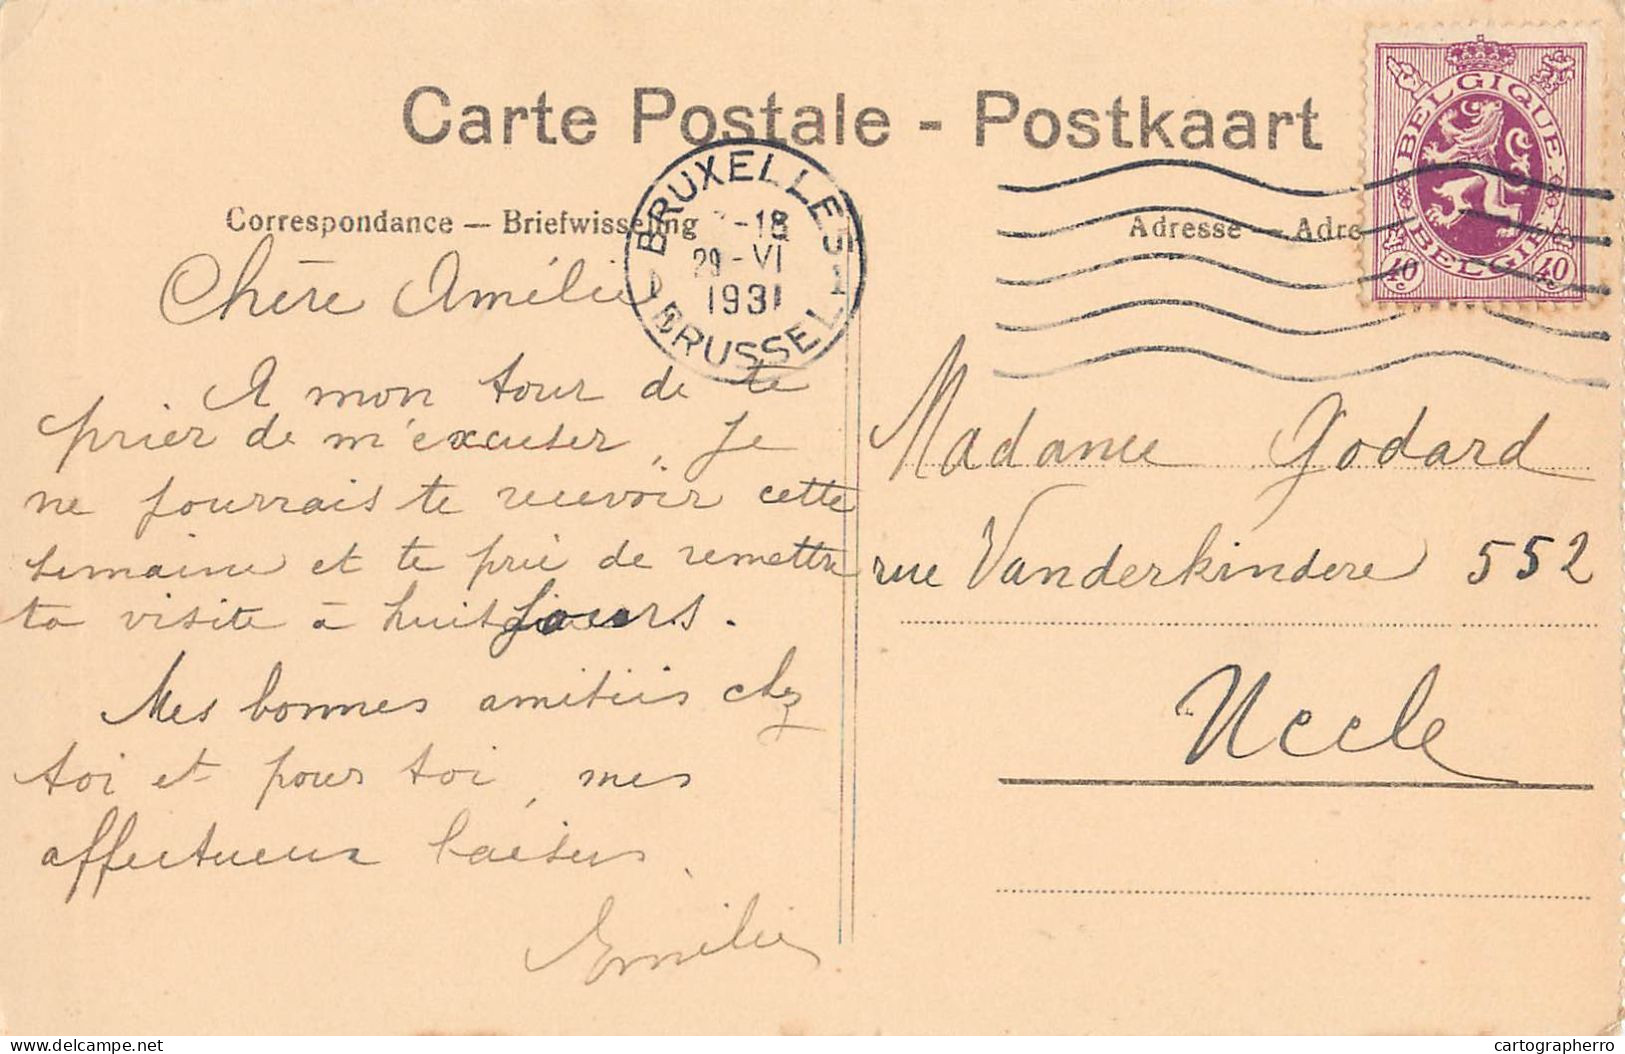 Carte Postale - Postkaart
Correspondance — Briefwisseling
Adresse — Adre
BRUXELLES 1
-18
29-VI
1931
BRUSSEL
BELGIQUE
BELGIË
40 c 40 c
Chère Amélie
A mon tour de te
prier de m'excuser, je
ne pourrais te recevoir cette
semaine et te prie de remettre
ta visite à huit jours.
Mes bonnes amitiés chez
toi et pour toi, mes
affectueux baisers.
Emilie
Madame Godard
rue Vanderkindere 552
Uccle
delcampe.net
cartographerro